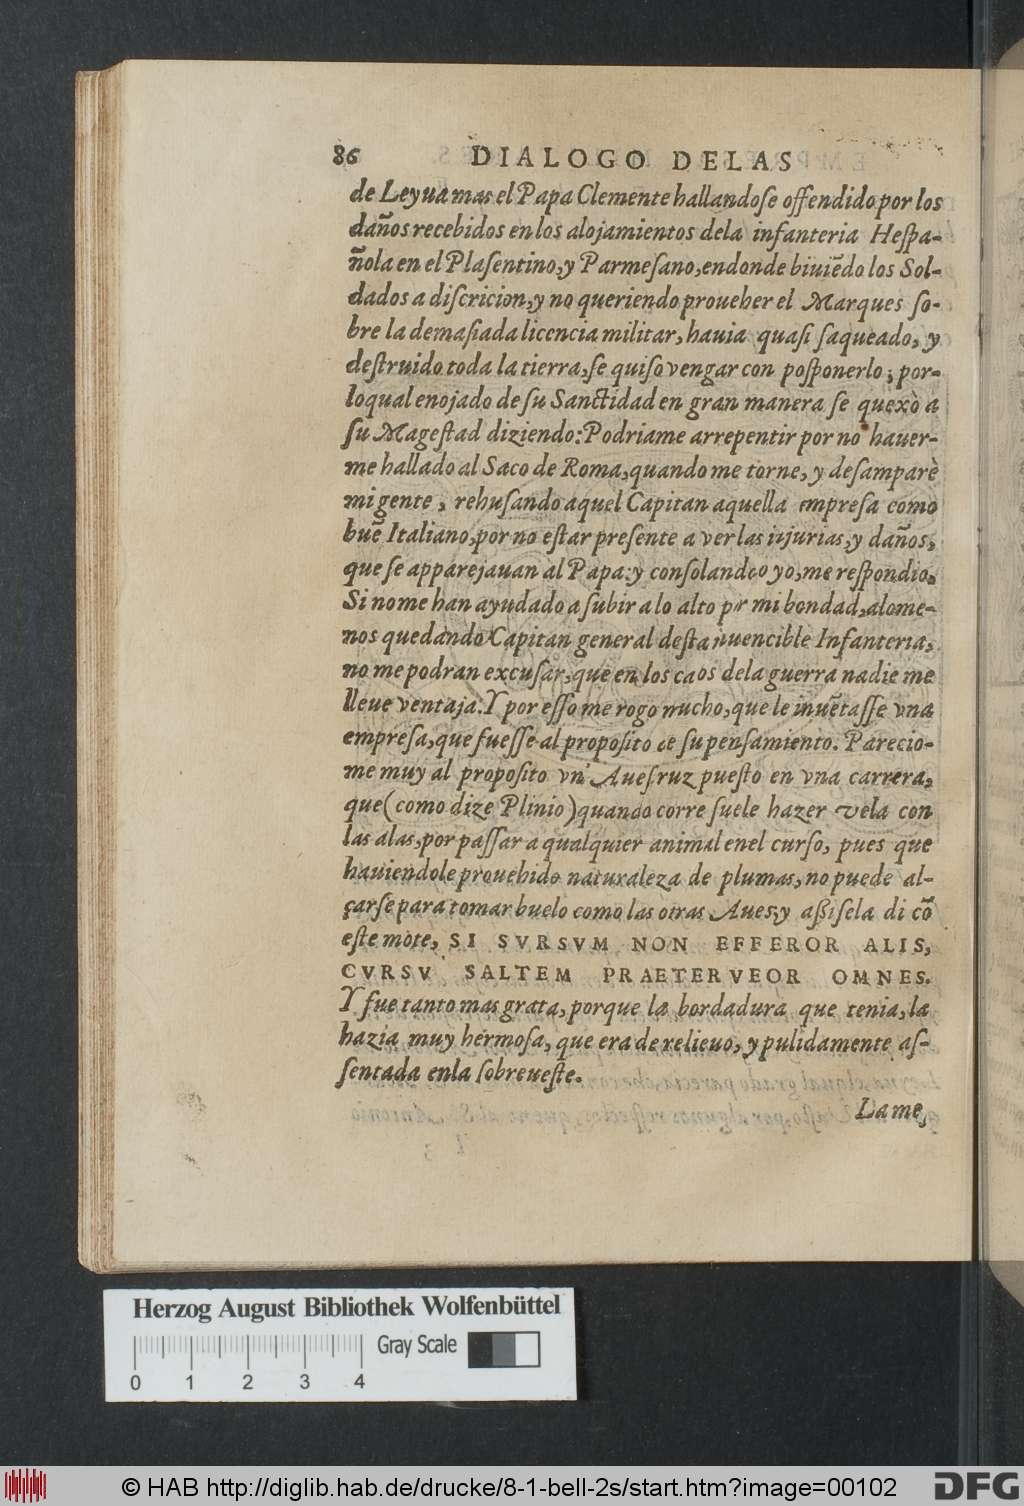 86 DIALOGO DELAS
de Leyua mas el Papa Clemente hallandoſe offendido por los
daños recebidos en los alojamientos dela infanteria Heſpa-
ñola en el Plaſentino, y Parmeſano, endonde biuiẽdo los Sol-
dados a diſcricion, y no queriendo proueher el Marques ſo-
bre la demaſiada licencia militar, hauia quaſi ſaqueado, y
deſtruido toda la tierra, ſe quiſo vengar con poſponerlo; por-
loqual enojado de ſu Sanctidad en gran manera ſe quexò a
ſu Mageſtad diziendo: Podriame arrepentir por no hauer-
me hallado al Saco de Roma, quando me torne, y deſamparè
mi gente, rehuſando aquel Capitan aquella empreſa como
buẽ Italiano, por no eſtar preſente a ver las injurias, y daños,
que ſe apparejauan al Papa: y conſolandoo yo, me reſpondio.
Si no me han ayudado a ſubir a lo alto por mi bondad, alome-
nos quedando Capitan general deſta inuencible Infanteria,
no me podran excuſar, que en los caos dela guerra nadie me
lleue ventaja. Y por eſſo me rogo mucho, que le inuẽtaſſe vna
empreſa, que fueſſe al propoſito de ſu penſamiento. Parecio-
me muy al propoſito vn' Aueſtruz pueſto en vna carrera,
que (como dize Plinio) quando corre ſuele hazer vela con
las alas, por paſſar a qualquier animal enel curſo, pues que
hauiendole prouehido naturaleza de plumas, no puede al-
çarſe para tomar buelo como las otras Aues; y aßi ſela di cõ
eſte mote, SI SVRSVM NON EFFEROR ALIS,
CVRSV SALTEM PRAETERVEOR OMNES.
Y fue tanto mas grata, porque la bordadura que tenia, la
hazia muy hermoſa, que era de relieuo, y pulidamente aſ-
ſentada enla ſobreueſte.
La me,
Herzog August Bibliothek Wolfenbüttel
Gray Scale
0 1 2 3 4
© HAB http://diglib.hab.de/drucke/8-1-bell-2s/start.htm?image=00102
DFG